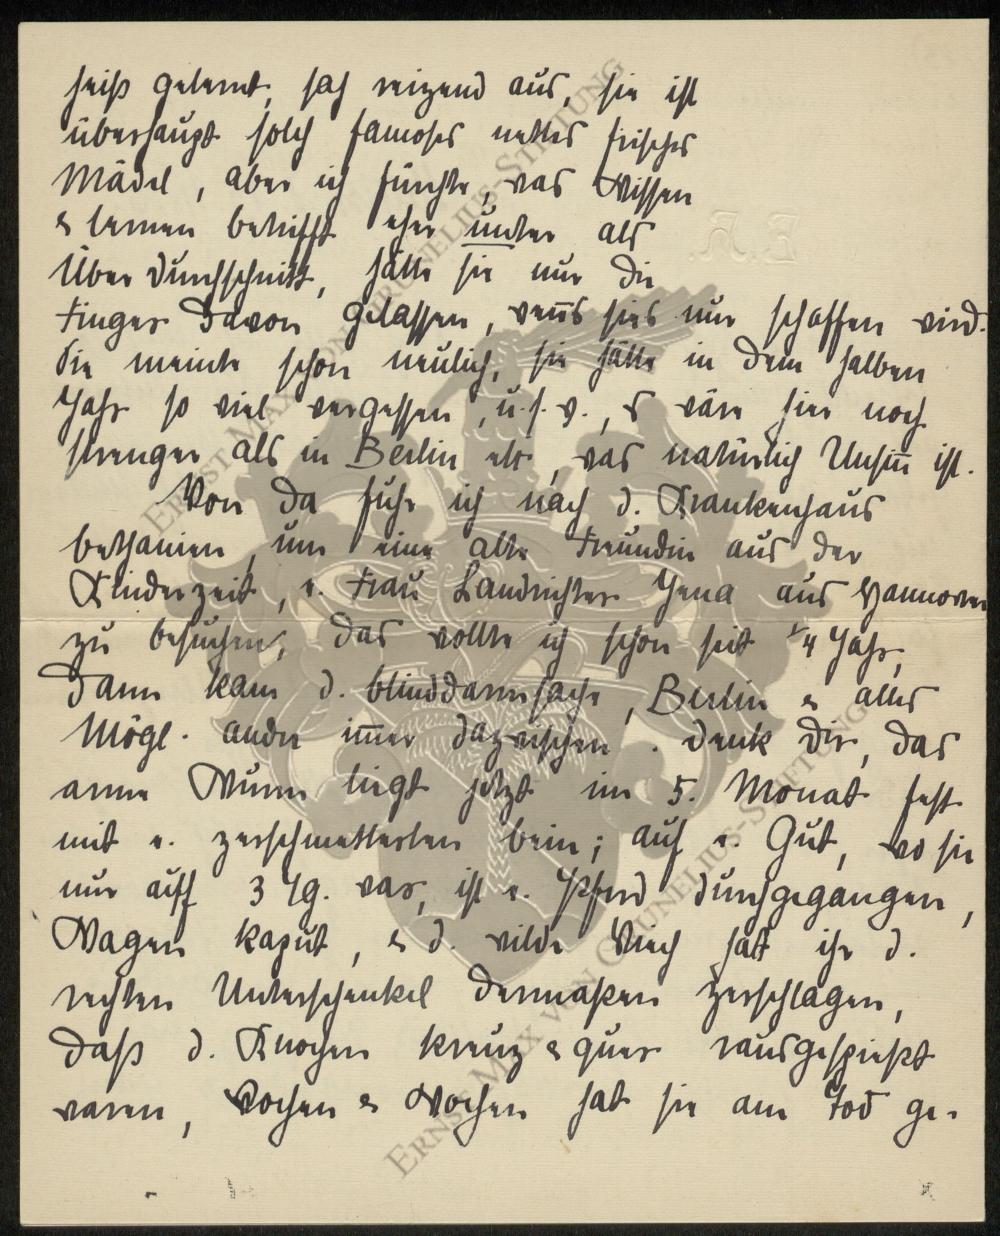 heiß gelernt, sah reizend aus, sie ist
überhaupt solch famoses nettes frisches
Mädel, aber ich fürchte, was Wissen
& lernen betrifft eher unter als
Über durchschnitt, hätte sie nur die
Finger davon gelassen, wenns sies nur schaffen wird.
Sie meinte schon neulich, sie hätte in dem halben
Jahr so viel vergessen, u.s.w., es wäre hier noch
strenger als in Berlin etc, was natürlich Unsin̄ ist.
Von da fuhr ich nach d. Krankenhaus
bethanien, um eine alte Freundin aus der
Kinderzeit, e. Frau Landrichter Jena aus Hannover
zu besuchen, das wollte ich schon seit 1/4 Jahr,
dann kam d. blinddarmsache, Berlin & alles
Mögl. andre im̄er dazwischen. denk Dir, das
arme Wurm liegt jetzt im 5. Monat fest
mit e. zerschmetterten bein; auf e. Gut, wo sie
nur auff 3 Tg. war, ist e. Pferd durchgegangen,
Wagen kaput, & d. wilde Viech hat ihr d.
rechten Unterschenkel dermaßen zerschlagen,
daß d. Knochen kreuz & quer rausgespießt
waren, Wochen & Wochen hat sie am Tod ge-
E.H.
Ernst Max von Grunelius-Stiftung
Ernst Max von Grunelius-Stiftung